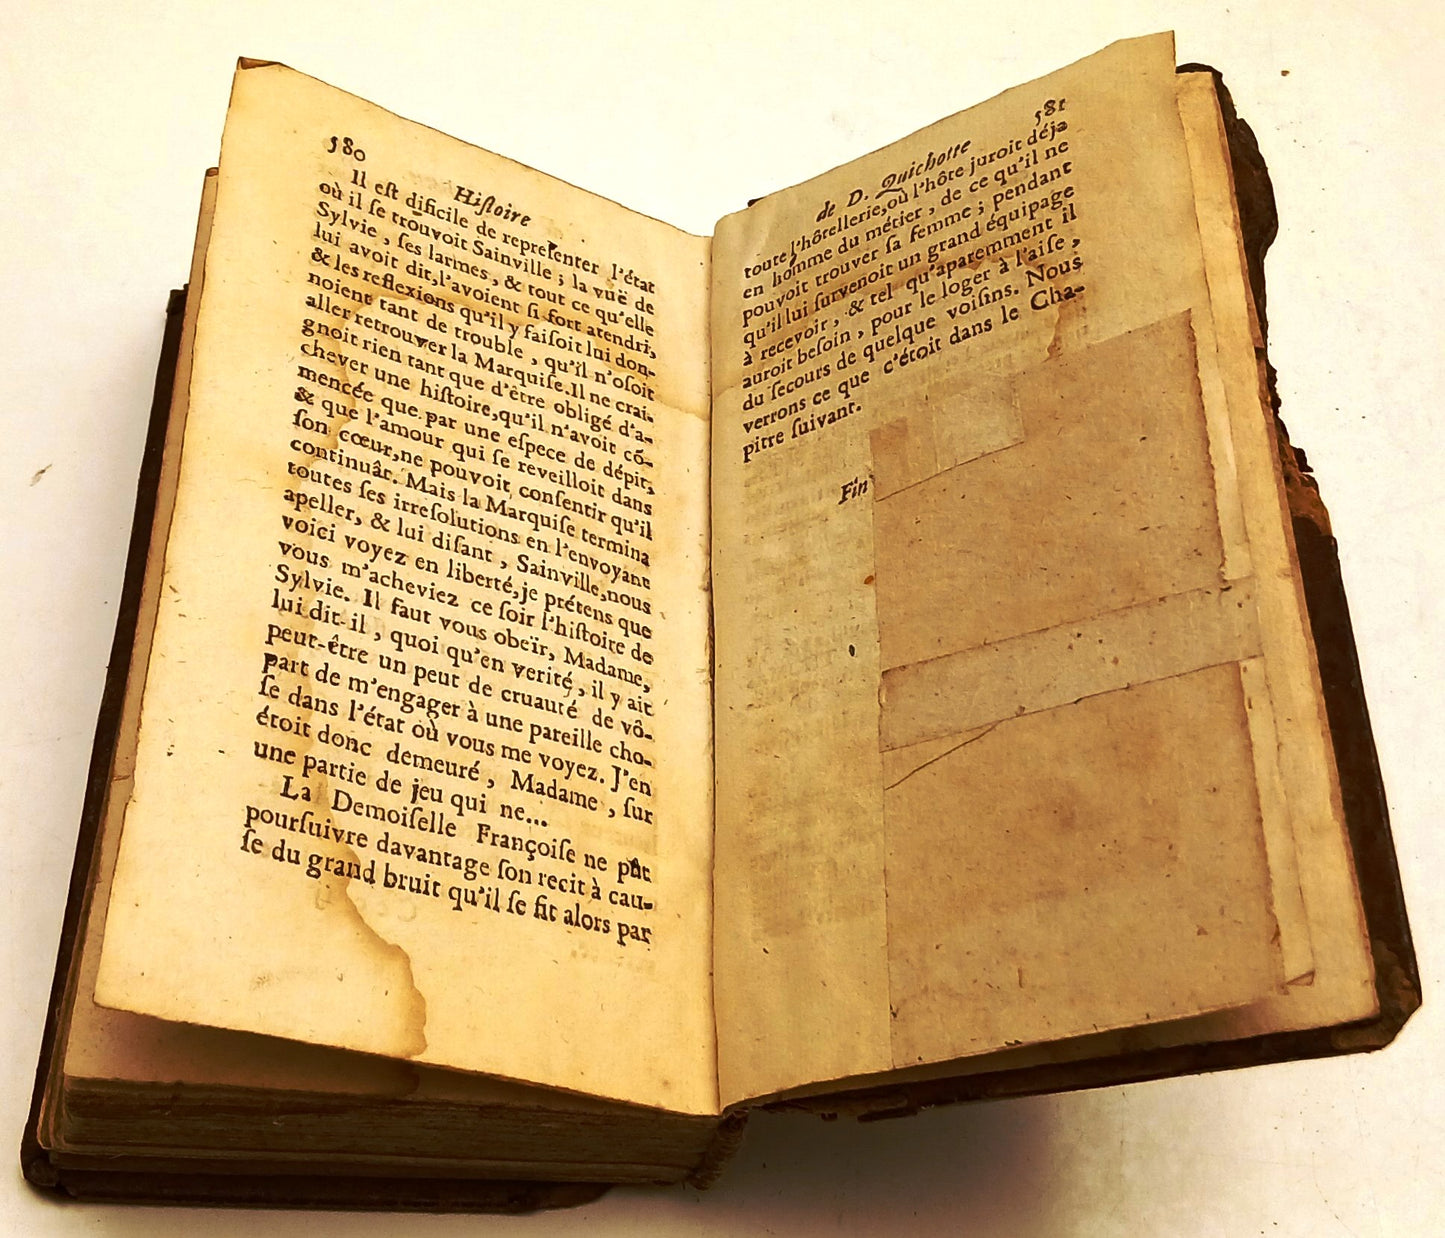 580
Hiſtoire
Il eſt dificile de repreſenter l'état
où il ſe trouvoit Sainville ; la vuë de
Sylvie , ſes larmes , & tout ce qu'elle
lui avoit dit,l'avoient ſi fort atendri,
& les reflexions qu'il y faiſoit lui don-
noient tant de trouble , qu'il n'oſoit
aller retrouver la Marquiſe.Il ne crai-
gnoit rien tant que d'être obligé d'a-
chever une hiſtoire,qu'il n'avoit cõ-
mencée que par une eſpece de dépit,
& que l'amour qui ſe reveilloit dans
ſon cœur,ne pouvoit conſentir qu'il
continuât. Mais la Marquiſe termina
toutes ſes irreſolutions en l'envoyant
apeller, & lui diſant , Sainville,nous
voici voyez en liberté,je prétens que
vous m'acheviez ce ſoir l'hiſtoire de
Sylvie. Il faut vous obeïr, Madame,
lui dit-il , quoi qu'en verité , il y ait
peut-être un peut de cruauté de vô-
part de m'engager à une pareille cho-
ſe dans l'état où vous me voyez. J'en
étoit donc demeuré , Madame , ſur
une partie de jeu qui ne...
La Demoiſelle Françoiſe ne pût
pourſuivre davantage ſon recit à cau-
ſe du grand bruit qu'il ſe fit alors par
de D. Quichotte
581
toute l'hôtellerie,où l'hôte juroit déja
en homme du métier , de ce qu'il ne
pouvoit trouver ſa femme ; pendant
qu'il lui ſurvenoit un grand équipage
à recevoir , & tel qu'aparemment il
auroit beſoin , pour le loger à l'aiſe ,
du ſecours de quelque voiſins. Nous
verrons ce que c'étoit dans le Cha-
pitre ſuivant.
Fin